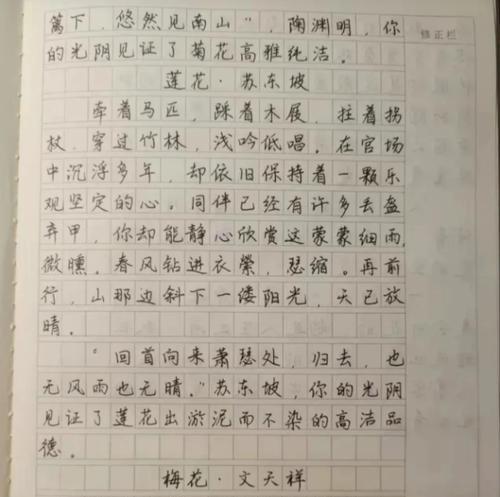 篱下，悠然见南山"，陶渊明，你
的光阴见证了菊花高雅纯洁。
莲花·苏东坡
牵着马匹，踩着木屐，拄着拐
杖，穿过竹林，浅吟低唱。在官场
中沉浮多年，却依旧保持着一颗乐
观坚定的心。同伴已经有许多丢盔
弃甲，你却能静心欣赏这蒙蒙细雨，
微醺。春风钻进衣襟，瑟缩。再前
行，山那边斜下一缕阳光，天已放
晴。
"回首向来萧瑟处，归去，也
无风雨也无晴。"苏东坡，你的光阴
见证了莲花出淤泥而不染的高洁品
德。
梅花·文天祥
修正栏